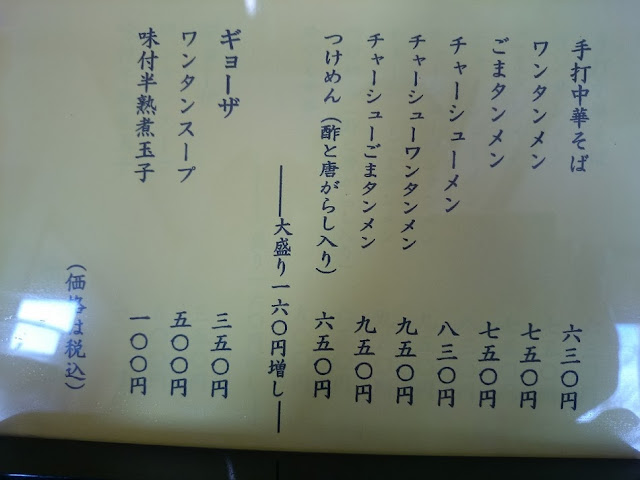 手打中華そば 六三〇円
ワンタンメン 七五〇円
ごまタンメン 七五〇円
チャーシューメン 八三〇円
チャーシューワンタンメン 九五〇円
チャーシューごまタンメン 九五〇円
つけめん（酢と唐がらし入り） 六五〇円
――大盛り一六〇円増し――
ギョーザ 三五〇円
ワンタンスープ 五〇〇円
味付半熟煮玉子 一〇〇円
（価格は税込）